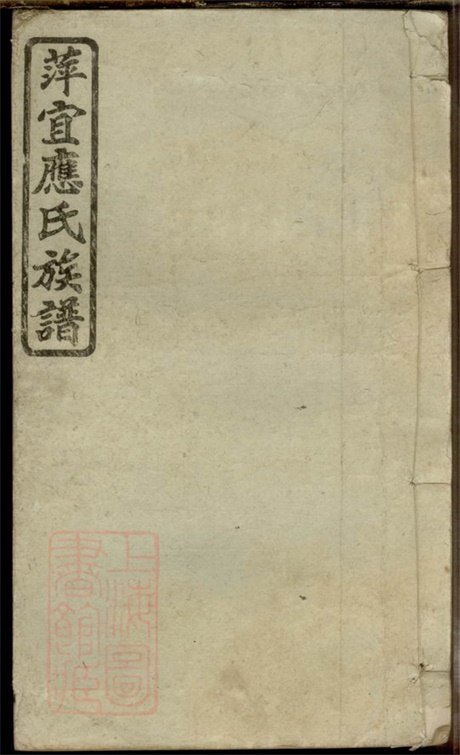 萍宜應氏族譜
上海圖
書館藏